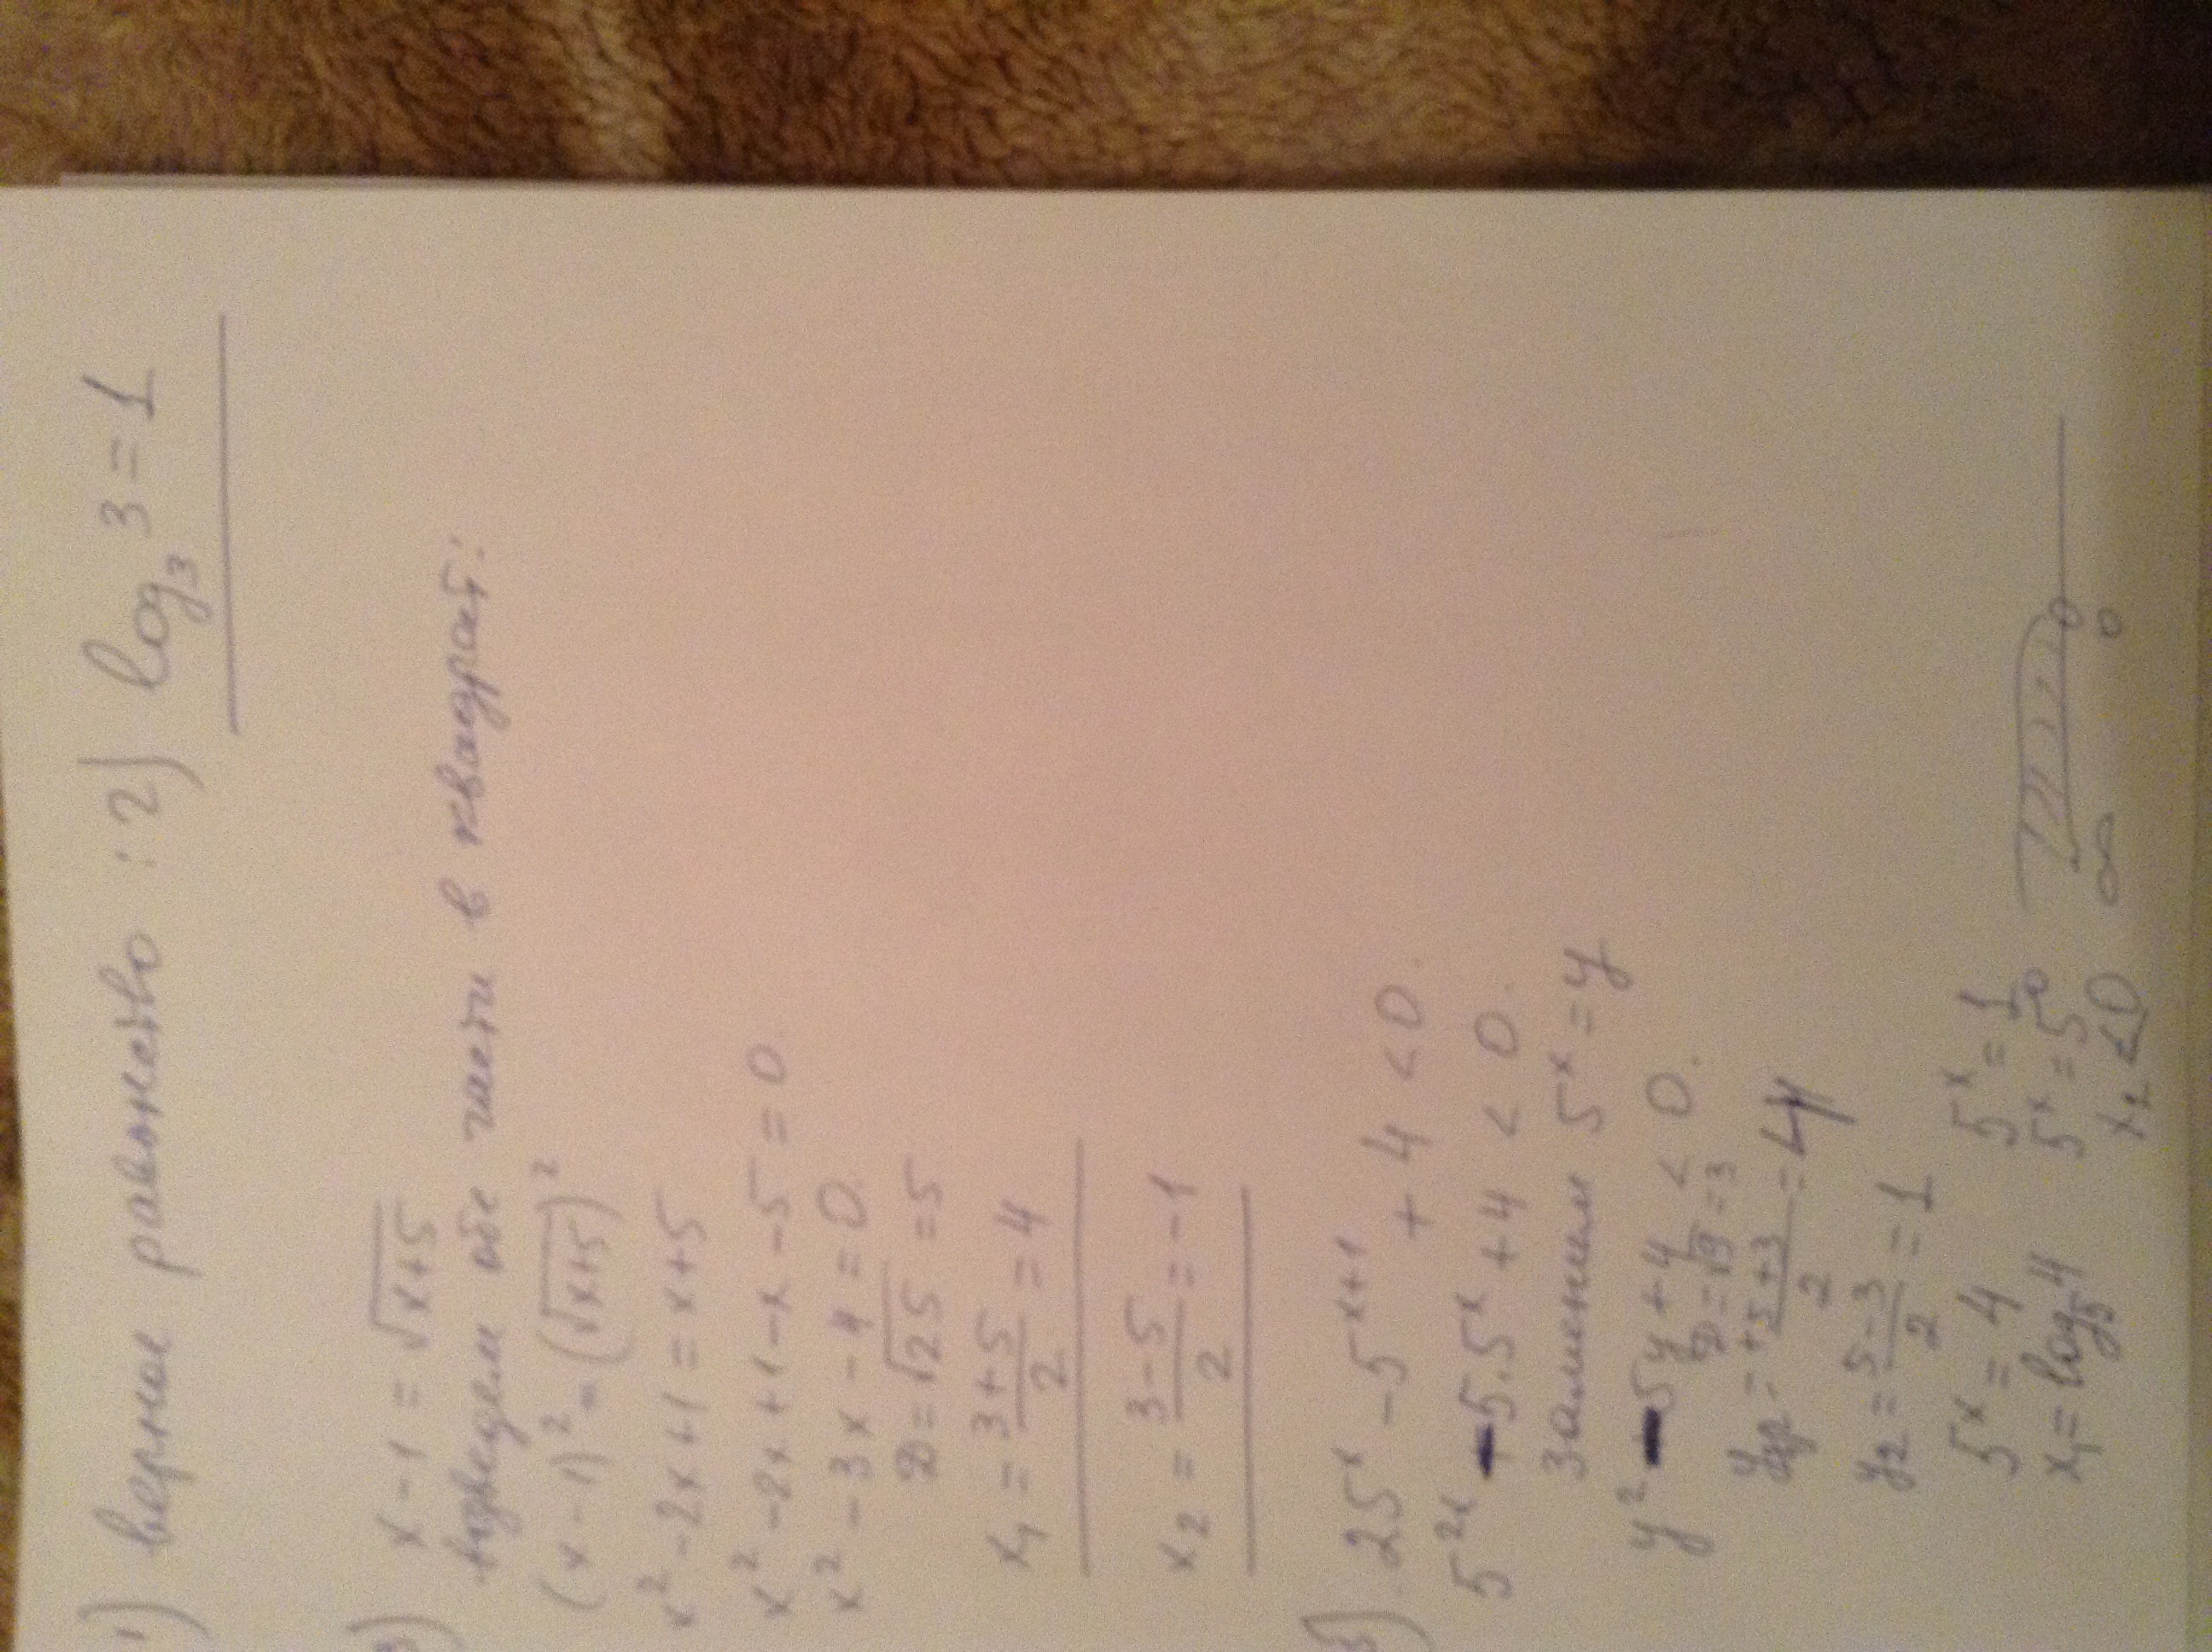 1) верное равенство: 2) log₃3=1
3) x-1=√(x+5)
возведем обе части в квадрат:
(x-1)²=(√(x+5))²
x²-2x+1=x+5
x²-2x+1-x-5=0
x²-3x-4=0.
D=√25=5
x₁=(3+5)/2=4
x₂=(3-5)/2=-1
25ˣ-5ˣ⁺¹+4<0.
5²ˣ-5·5ˣ+4<0.
заменим 5ˣ=y
y²-5y+4<0.
D=√9=3
=(+5+3)/2=4
y₂=(5-3)/2=1
5ˣ=4 5ˣ=1
x₁=log₅4 5ˣ=5⁰
x₂<0
∞ 0